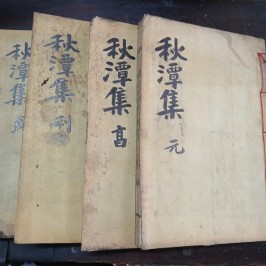 秋潭集
元
秋潭集
亨
秋潭集
利
秋潭集